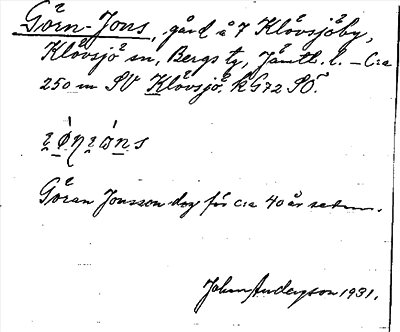 Görn-Jons, gård å 7 Klövsjöby,
Klövsjö sn, Bergs tg, Jämtl. l. – C:a
250 m SV Klövsjö k G72 SÖ.
Göran Jonsson dog för c:a 40 år sedan.
John Andersson 1931.